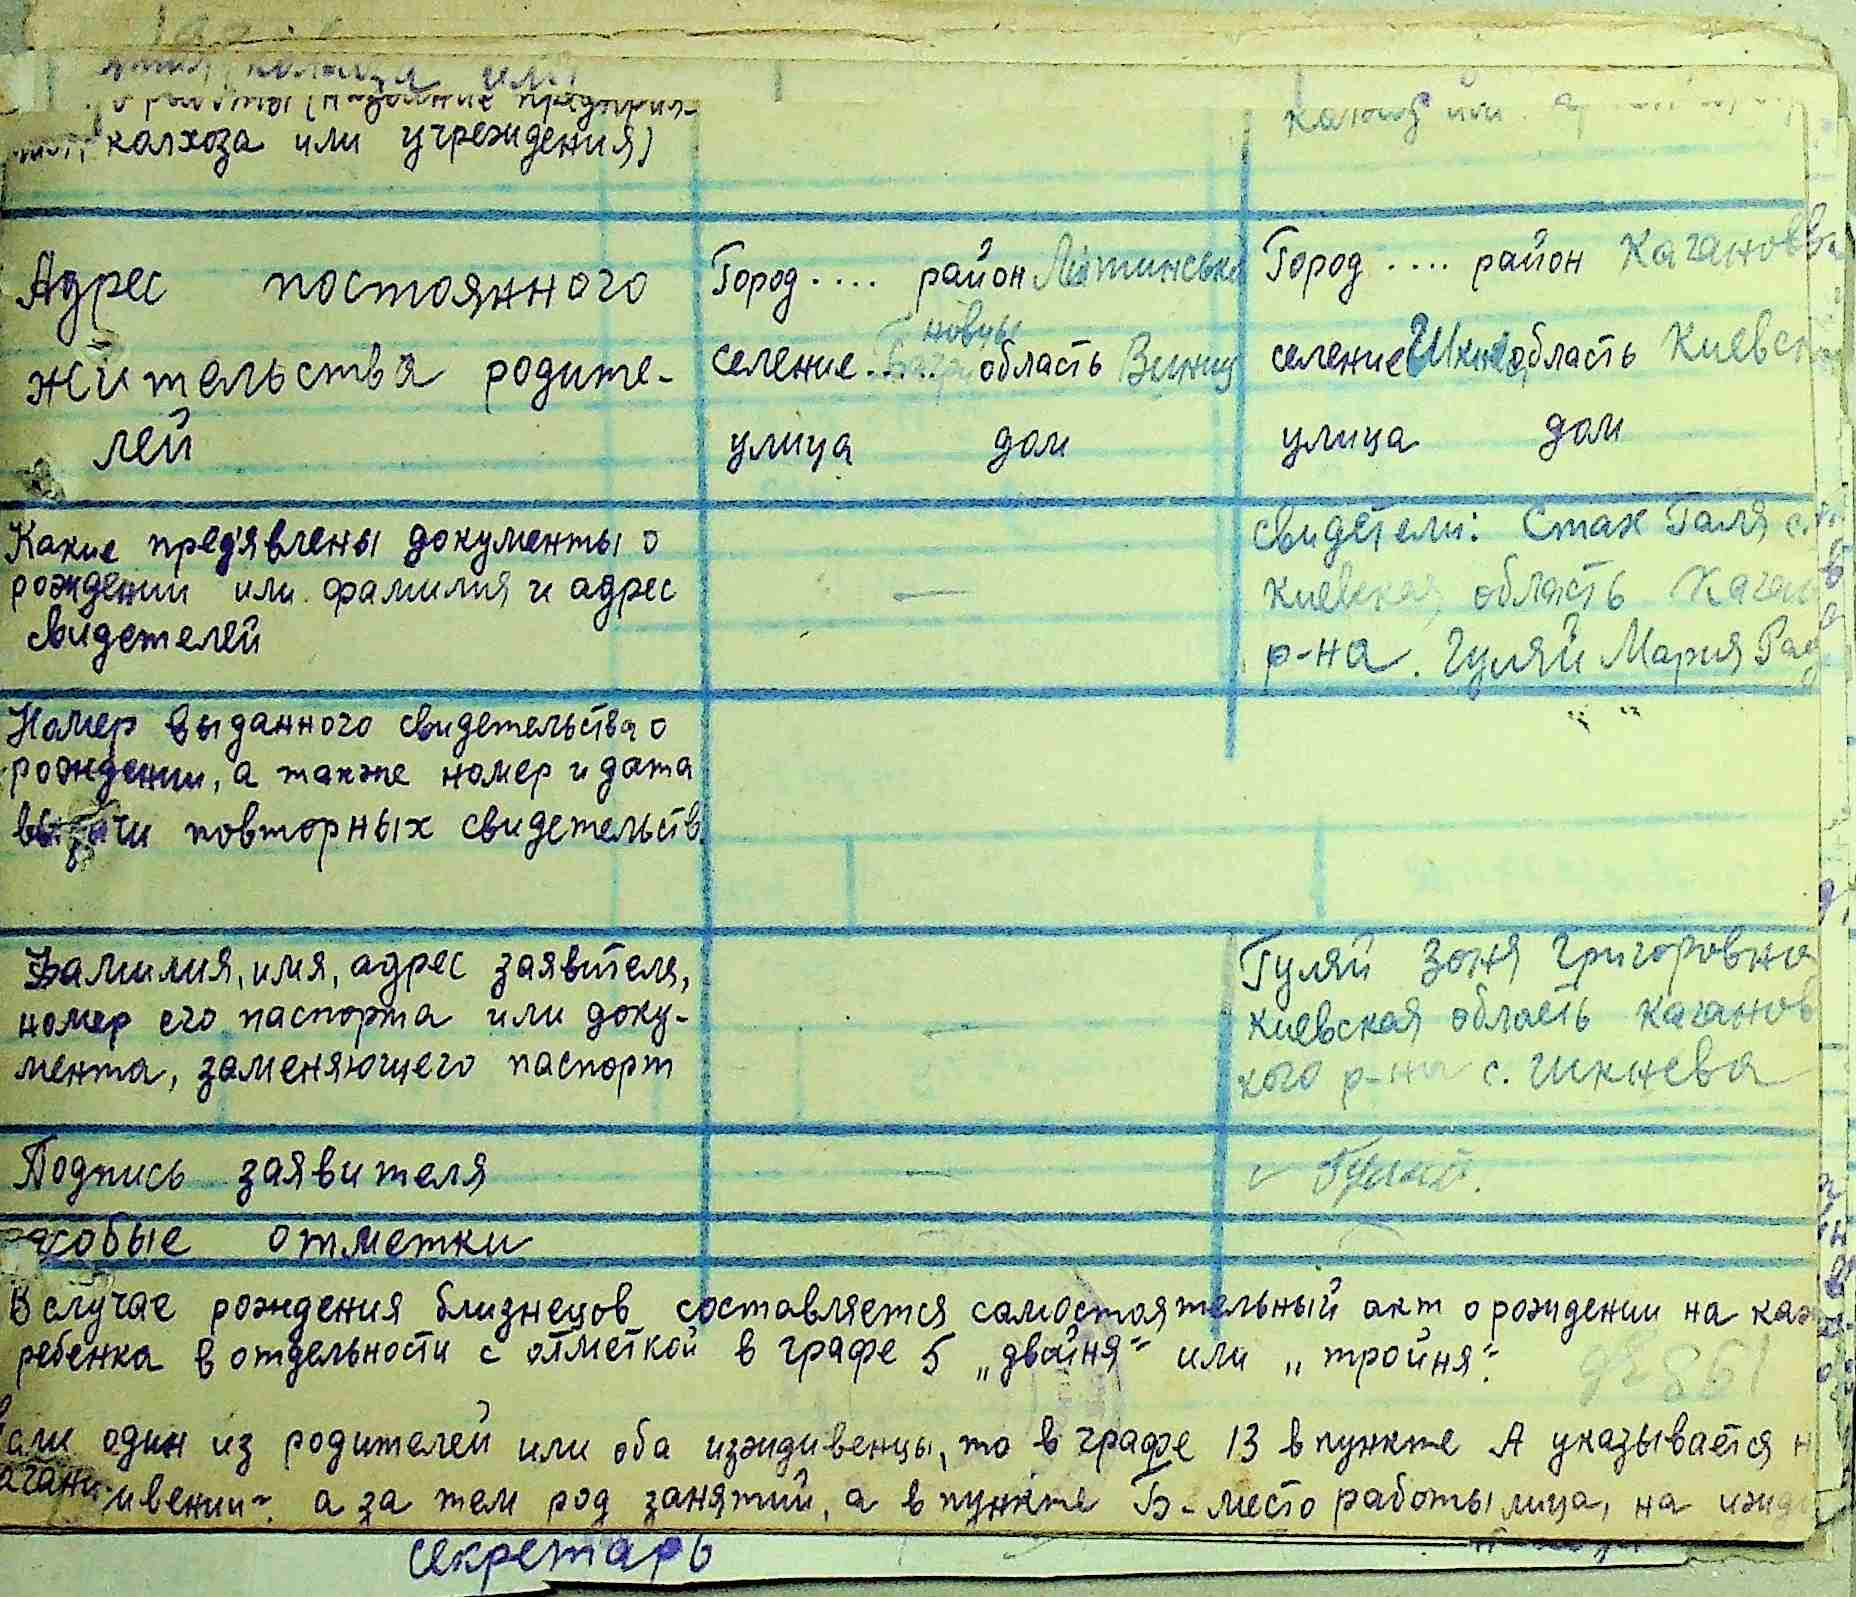 колхоза или учреждения)
Адрес постоянного
жительства родите-
лей
Город .... район Литинськи
новцы
селение ..Бага.. область Винниц
улица дом
Город .... район Каганов
селение Шкнев область Киевск
улица дом
Какие пред'явлены документы о
рождении или фамилия и адрес
свидетелей
—
Свидетели: Стах Галя с.
Киевская область Каган
р-на. Гуляй Мария Рад
" "
Номер выданного свидетельства о
рождении, а также номер и дата
выдачи повторных свидетельств.
Фамилия, имя, адрес заявителя,
номер его паспорта или доку-
мента, заменяющего паспорт
—
Гуляй Зоня Григоровна
Киевская область Каганов
кого р-на с. Шкнева
Подпись заявителя
—
Гуляй.
особые отметки
В случае рождения близнецов составляется самостоятельный акт о рождении на каж
ребенка в отдельности с отметкой в графе 5 „двойня" или „тройня".
один из родителей или оба иждивенцы, то в графе 13 в пункте А указывается н
ивении". а за тем род занятий, а в пункте Б-место работы лица, на ижд
секретарь